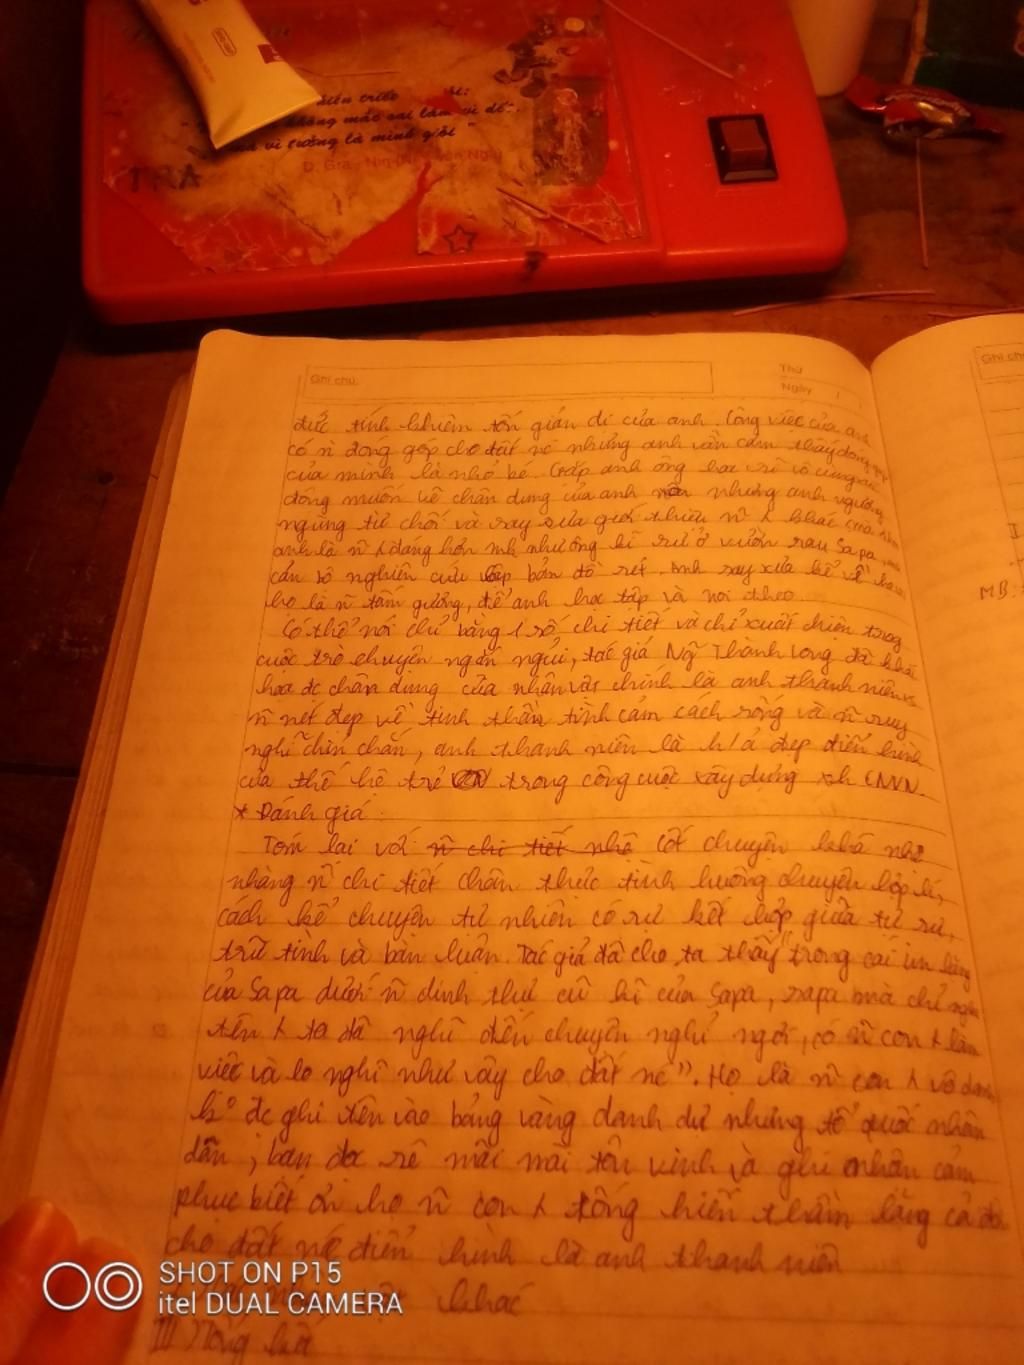 hiền triết
không mắc sai lầm vì dễ
vì tưởng là mình giỏi "
TRA
Ghi chú:
Thứ
Ngày
Ghi chú
đức tính khiêm tốn giản dị của anh. Công việc của anh
có n̄ đóng góp cho đất nc nhưng anh vẫn cảm thấy đóng góp
của mình là nhỏ bé. Gặp anh ông hoạ sĩ vô cùng
động muốn vẽ chân dung của anh nhưng anh ngượng
ngùng từ chối và say sưa giới thiệu n̄ λ khác
anh là n̄ λ đáng hơn mk như ông kĩ sư ở vườn rau Sa pa
cán bộ nghiên cứu lập bản đồ sét. Anh say xưa kể về họ
họ là n̄ tấm gương, để anh học tập và noi theo.
Có thể nói chỉ bằng 1 số chi tiết và chỉ xuất hiện trong
cuộc trò chuyện ngắn ngủi, tác giả Ng~ Thành Long đã khắc
hoạ đc chân dung của nhân vật chính là anh thanh niên vs
n̄ nét đẹp về tinh thần tình cảm cách sống và n̄ suy
nghĩ chín chắn, anh thanh niên là h/ả đẹp điển hình
của thế hệ trẻ VN trong công cuộc xây dựng xh CNVN.
* Đánh giá:
Tóm lại với n̄ chi tiết nhẹ cốt chuyện khá nhẹ
nhàng n̄ chi tiết chân thực tình huống chuyện hợp lí,
cách kể chuyện tự nhiên có sự kết hợp giữa tự sự,
trữ tình và bàn luận. Tác giả đã cho ta thấy "trong cái im lặng
của Sa pa dưới n̄ dinh thự cũ kĩ của Sapa, sapa mà chỉ nghe
tên λ ta đã nghĩ đến chuyện nghỉ ngơi, có n̄ con λ làm
việc và lo nghĩ như vậy cho đất nc". Họ là n̄ con λ vô danh
k° đc ghi tên vào bảng vàng danh dự nhưng tổ quốc nhân
dân, bạn đọc sẽ mãi mãi tôn vinh và ghi nhận cảm
phục biết ơn họ n̄ con λ cống hiến thầm lặng cả đời
cho đất nc điển hình là anh thanh niên
khác
III
MB:
SHOT ON P15
itel DUAL CAMERA